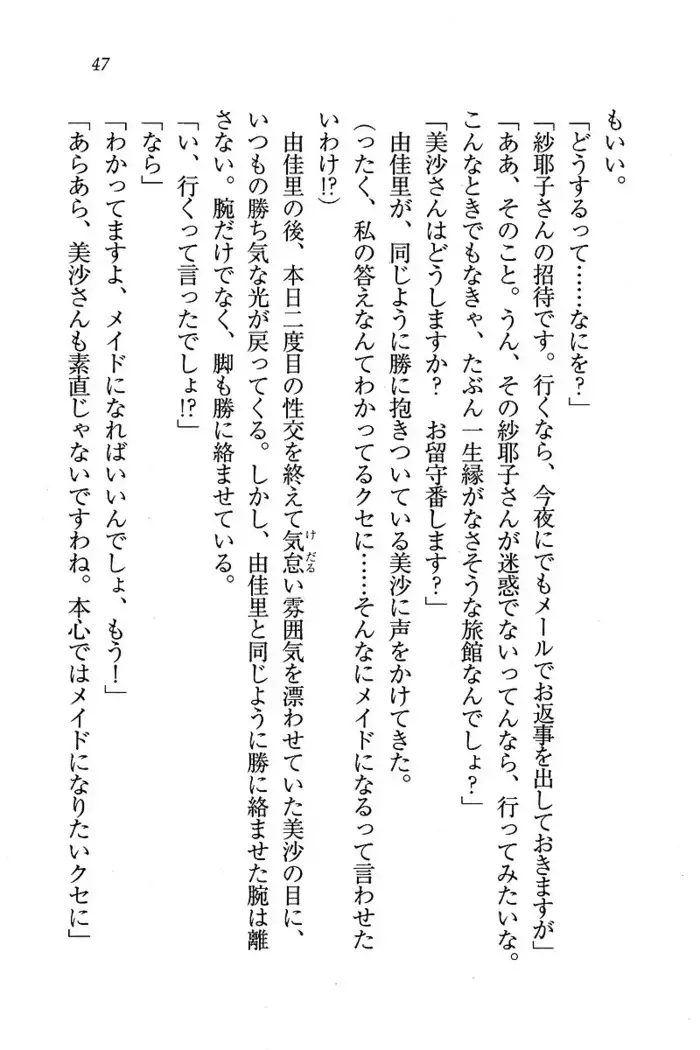 47
もいい。
「どうするって……なにを？」
「紗耶子さんの招待です。行くなら、今夜にでもメールでお返事を出しておきますが」
「ああ、そのこと。うん、その紗耶子さんが迷惑でないってんなら、行ってみたいな。
こんなときでもなきゃ、たぶん一生縁がなさそうな旅館なんでしょ？」
「美沙さんはどうしますか？　お留守番します？」
由佳里が、同じように勝に抱きついている美沙に声をかけてきた。
（ったく、私の答えなんてわかってるクセに……そんなにメイドになるって言わせた
いわけ!?）
由佳里の後、本日二度目の性交を終えて気怠い雰囲気を漂わせていた美沙の目に、
けだる
いつもの勝ち気な光が戻ってくる。しかし、由佳里と同じように勝に絡ませた腕は離
さない。腕だけでなく、脚も勝に絡ませている。
「い、行くって言ったでしょ!?」
「なら」
「わかってますよ、メイドになればいいんでしょ、もう！」
「あらあら、美沙さんも素直じゃないですわね。本心ではメイドになりたいクセに」